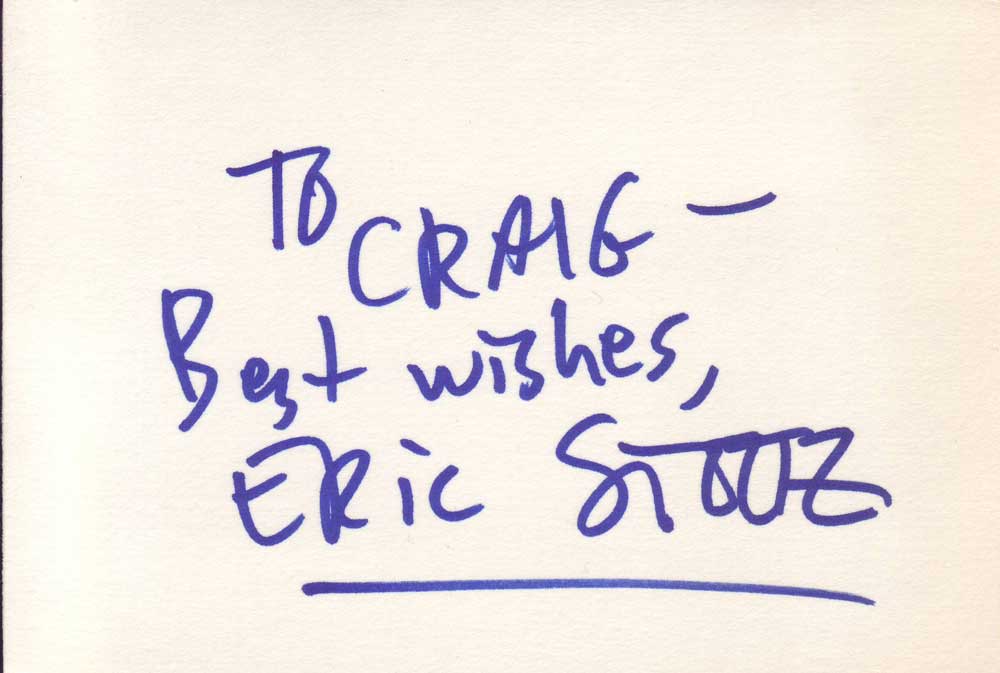 To CRAIG —
Best wishes,
ERic STOLTZ